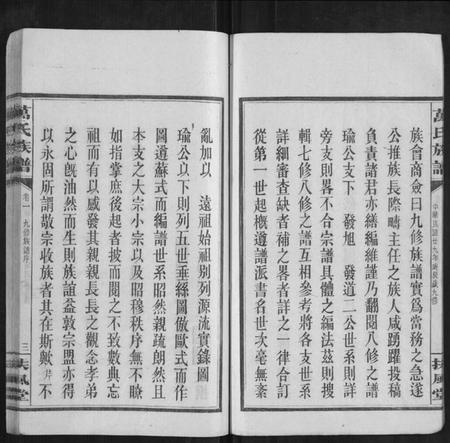 萬氏族譜
中華民國廿九年
九修
扶風堂
族會商僉曰九修族譜實爲當務之急遂
公推族長際疇主任之族人咸踴躍投稿
負責諸君亦繕編維謹乃翻閱八修之譜
瑜公支下　發旭　發道二公世系則詳
旁支則畧不合宗譜具體之編法茲則搜
輯七修八修之譜互相參考將各支世系
詳細審查缺者補之畧者詳之一律合訂
從第一世起概遵譜派書名世次毫無紊
亂加以　遠祖始祖別列源流實錄圖
瑜公以下則列五世垂絲圖倣歐式而作
圖遵蘇式而編譜世系昭然親疏朗然且
本支之大宗小宗以及昭穆秩序無不瞭
如指掌庶後起者披而閱之不致數典忘
祖而有以感發其親親長長之觀念孝弟
之心旣油然而生則族誼益敦宗盟亦得
以永固所謂敬宗收族者其在斯歟時不
萬氏族譜
卷一　九修族譜序
三
扶風堂